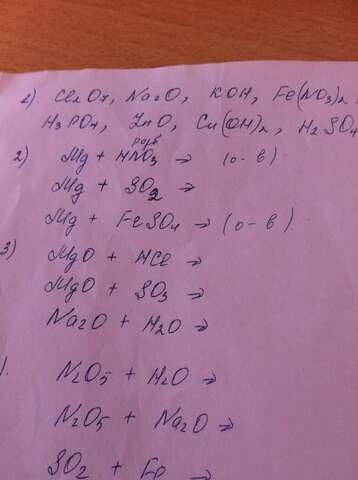 1). Cl2O7, Na2O, KOH, Fe(NO3)2,
H3PO4, ZnO, Cu(OH)2, H2SO
2) Mg + HNO3 разб → (о-в)
Mg + SO2 →
Mg + FeSO4 → (о-в).
3) MgO + HCl →
MgO + SO3 →
Na2O + H2O →
N2O5 + H2O →
N2O5 + Na2O →
SO2 + Fe →